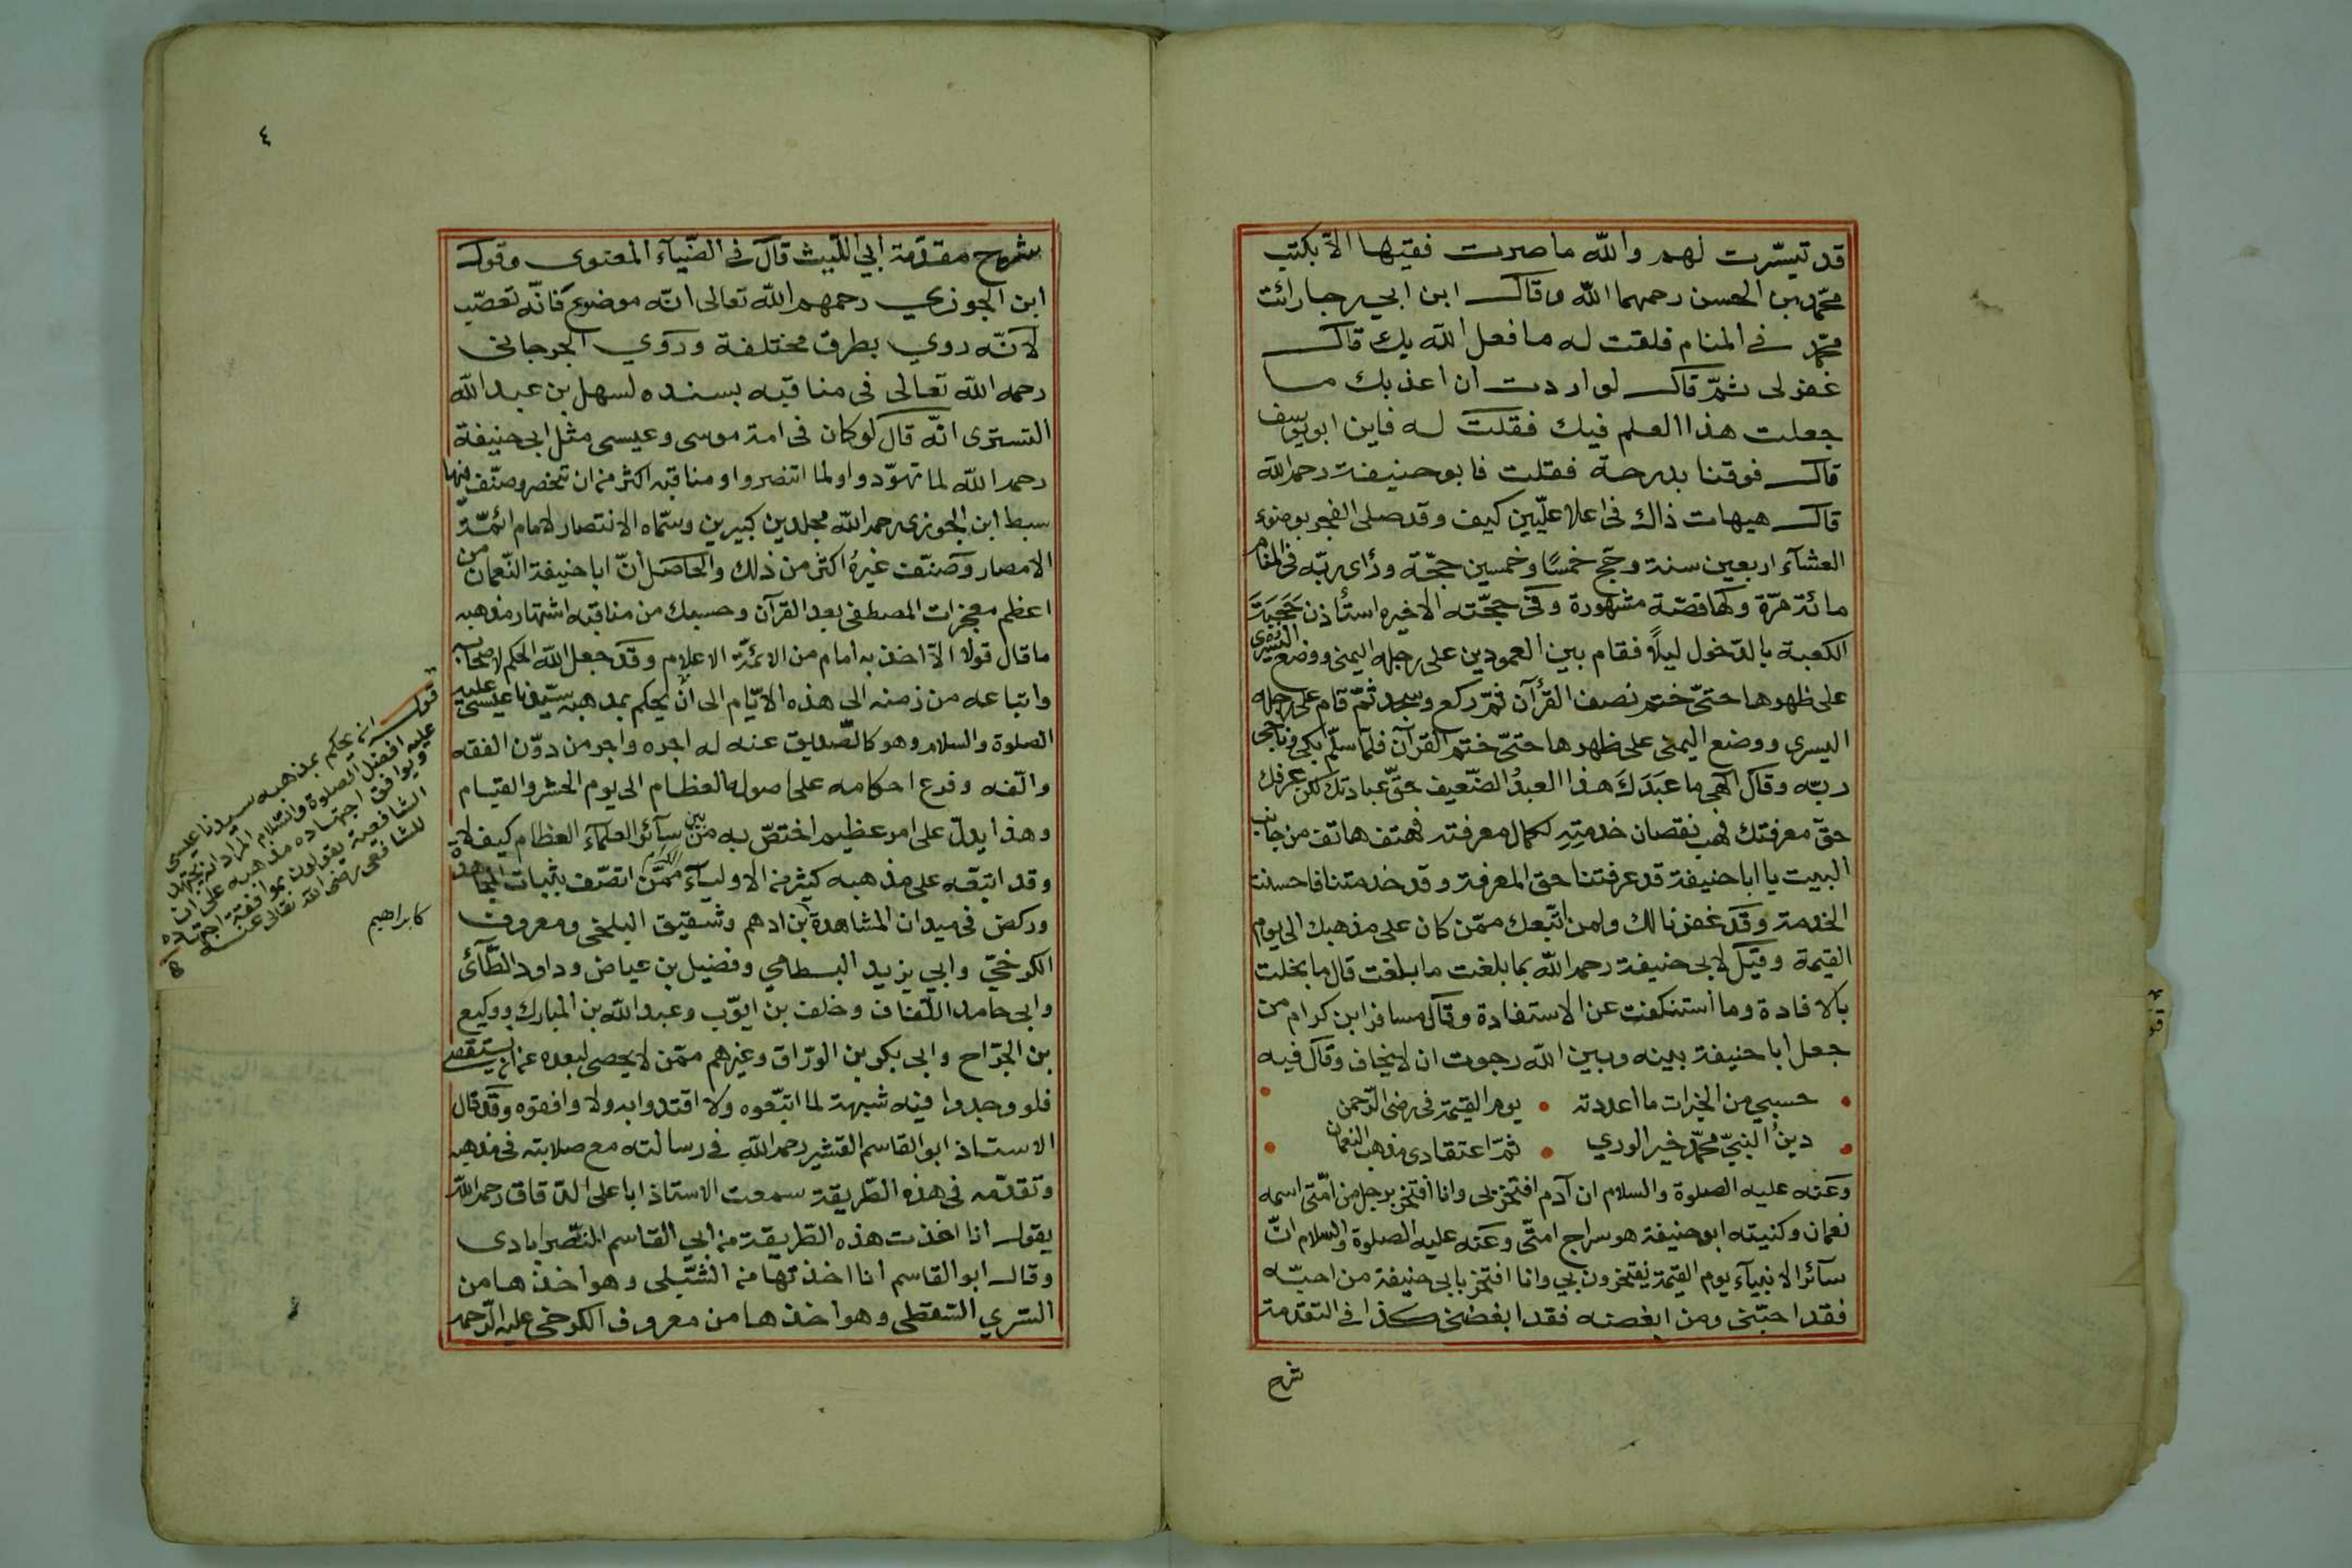 قد تيسّرت لهم والله ما صرت فقيها الّا بكتب
محمّد بن الحسن رحمهما الله وقال ابن ابي رجا رائت
محمّد في المنام فلقت له ما فعل الله بك قال
غفر لى ثمّ قال لو اردت ان اعذبك ما
جعلت هذا العلم فيك فقلت له فاين ابو يوسف
قال فوقنا بدرجة فقلت فابو حنيفة رحمه الله
قال هيهات ذاك فى اعلا علّيين كيف وقد صلى الفجر بوضوء
العشآء اربعين سنة وحجّ خمسًا وخمسين حجّة ورأى ربّه فى المنام
مائة مرّة ولها قصّة مشهورة وفى حجّته الاخيره استأذن حَجَبَةَ
الكعبة بالدّخول ليلًا فقام بين العمودين على رجله اليمنى ووضع اليسرى
على ظهرها حتىّ ختم نصف القرآن ثمّ ركع وسجد ثمّ قام على رجله
اليسرى ووضع اليمنى على ظهرها حتىّ ختم القرآن فلمّا سلّم بكى وناجى
ربّه وقال الهى ما عبَدَكَ هذا العبدُ الضّعيف حقّ عبادتك لكن عرفك
حقّ معرفتك فهب نقصان خدمتِهِ لكمال معرفته فهتف هاتف من جانب
البيت يا ابا حنيفة قد عرفتنا حق المعرفة وقد خدمتنا فاحسنت
الخدمة وقد غفرنا لك ولمن اتّبعك ممّن كان على مذهبك الى يوم
القيمة وقيل لابى حنيفة رحمه الله بما بلغت ما بلغت قال ما بخلت
بالافادة وما استنكفت عن الاستفادة وقال مسافر ابن كرام من
جعل ابا حنيفة بينه وبين الله رجوت ان لا يخاف وقال فيه
حسبي من الخيرات ما اعددته • يوم القيمة فى رضى الرّحمن
دينُ النبيّ محمّد خير الوري • ثمّ اعتقادى مذهب النعمان
وعنه عليه الصلوة والسلام ان آدم افتخر بى وانا افتخر برجل من امّتى اسمه
نعمان وكنيته ابو حنيفة هو سراج امتّى وعنه عليه الصلوة والسلام انّ
سآئر الانبيآء يوم القيمة يفتخرون بي وانا افتخر بابى حنيفة من احبّه
فقد احبّنى ومن ابغضه فقد ابغضنى كذا فى التقدمة
شرح
٤
شرح مقدّمة ابي اللّيث قال فى الضّيآء المعنوى وقول
ابن الجوزي رحمهم الله تعالى انّه موضوع فانّه تعصّب
لانّه روي بطرق مختلفة وروي الجرجانى
رحمه الله تعالى فى مناقبه بسنده لسهل بن عبد الله
التسترى انّه قال لو كان فى امة موسى وعيسى مثل ابى حنيفة
رحمه الله لما تهوّدوا ولما اتنصروا ومناقبه اكثر من ان تحصر وصنّف فيها
سبط ابن الجوزى رحمه الله مجلدين كبيرين وسمّاه الانتصار لامام ائمّة
الامصار وصنّف غيرهُ اكثر من ذلك والحاصل انّ ابا حنيفة النّعمان من
اعظم معجزات المصطفى بعد القرآن وحسبك من مناقبه اشتهار مذهبه
ما قال قولا الّا اخذ به امام من الائمّة الاعلام وقد جعل الله الحكم لاصحابه
واتباعه من زمنه الى هذه الايّام الى ان يحكم بمذهبه سيّدنا عيسى عليه
الصلوة والسلام وهو كالصّديق عنه له اجره واجر من دوّن الفقه
والّفه وفرع احكامه على اصوله العظام الى يوم الحشر والقيام
وهذا يدلّ على امر عظيم اختصّ به من بين سآئر العلمآء العظام كيف لا
وقد اتبّعه على مذهبه كثير من الاوليآء الكرام ممّن اتصّف بثبات المجاهدة
وركض فى ميدان المشاهدة بن ادهم وشقيق البلخى ومعروف
الكرخىّ وابي يزيد البسطامي وفضيل بن عياض وداود الطّآئى
وابى حامد اللّفاف وخلف بن ايوّب وعبد الله بن المبارك ووكيع
بن الجرّاح وابى بكر بن الورّاق وغيرهم ممّن لا يحصى لبعده عن ان يستقصى
فلو وجدوا فيه شبهة لما اتبّعوه ولا اقتدوا به ولا وافقوه وقد قال
الاستاذ ابو القاسم القشير رحمه الله فى رسالته مع صلابته فى مذهبه
وتقدّمه فى هذه الطّريقة سمعت الاستاذ ابا على الدقاق رحمه الله
يقول انا اخذت هذه الطّريقة من ابي القاسم النصّرابادى
وقال ابو القاسم انا اخذتها من الشّبلى وهو اخذها من
السّري السّقطى وهو اخذها من معروف الكرخى عليه الرّحمه
قوله انه يحكم بمذهبه سيدنا عيسى
عليه افضل الصلوة والسّلام المراد انه يجتهد
ويوافق اجتهاده مذهبه على ان
الشافعية يقولون بموافقة اجتهاده
للشافعى رضى الله تعالى عنه
كابراهيم